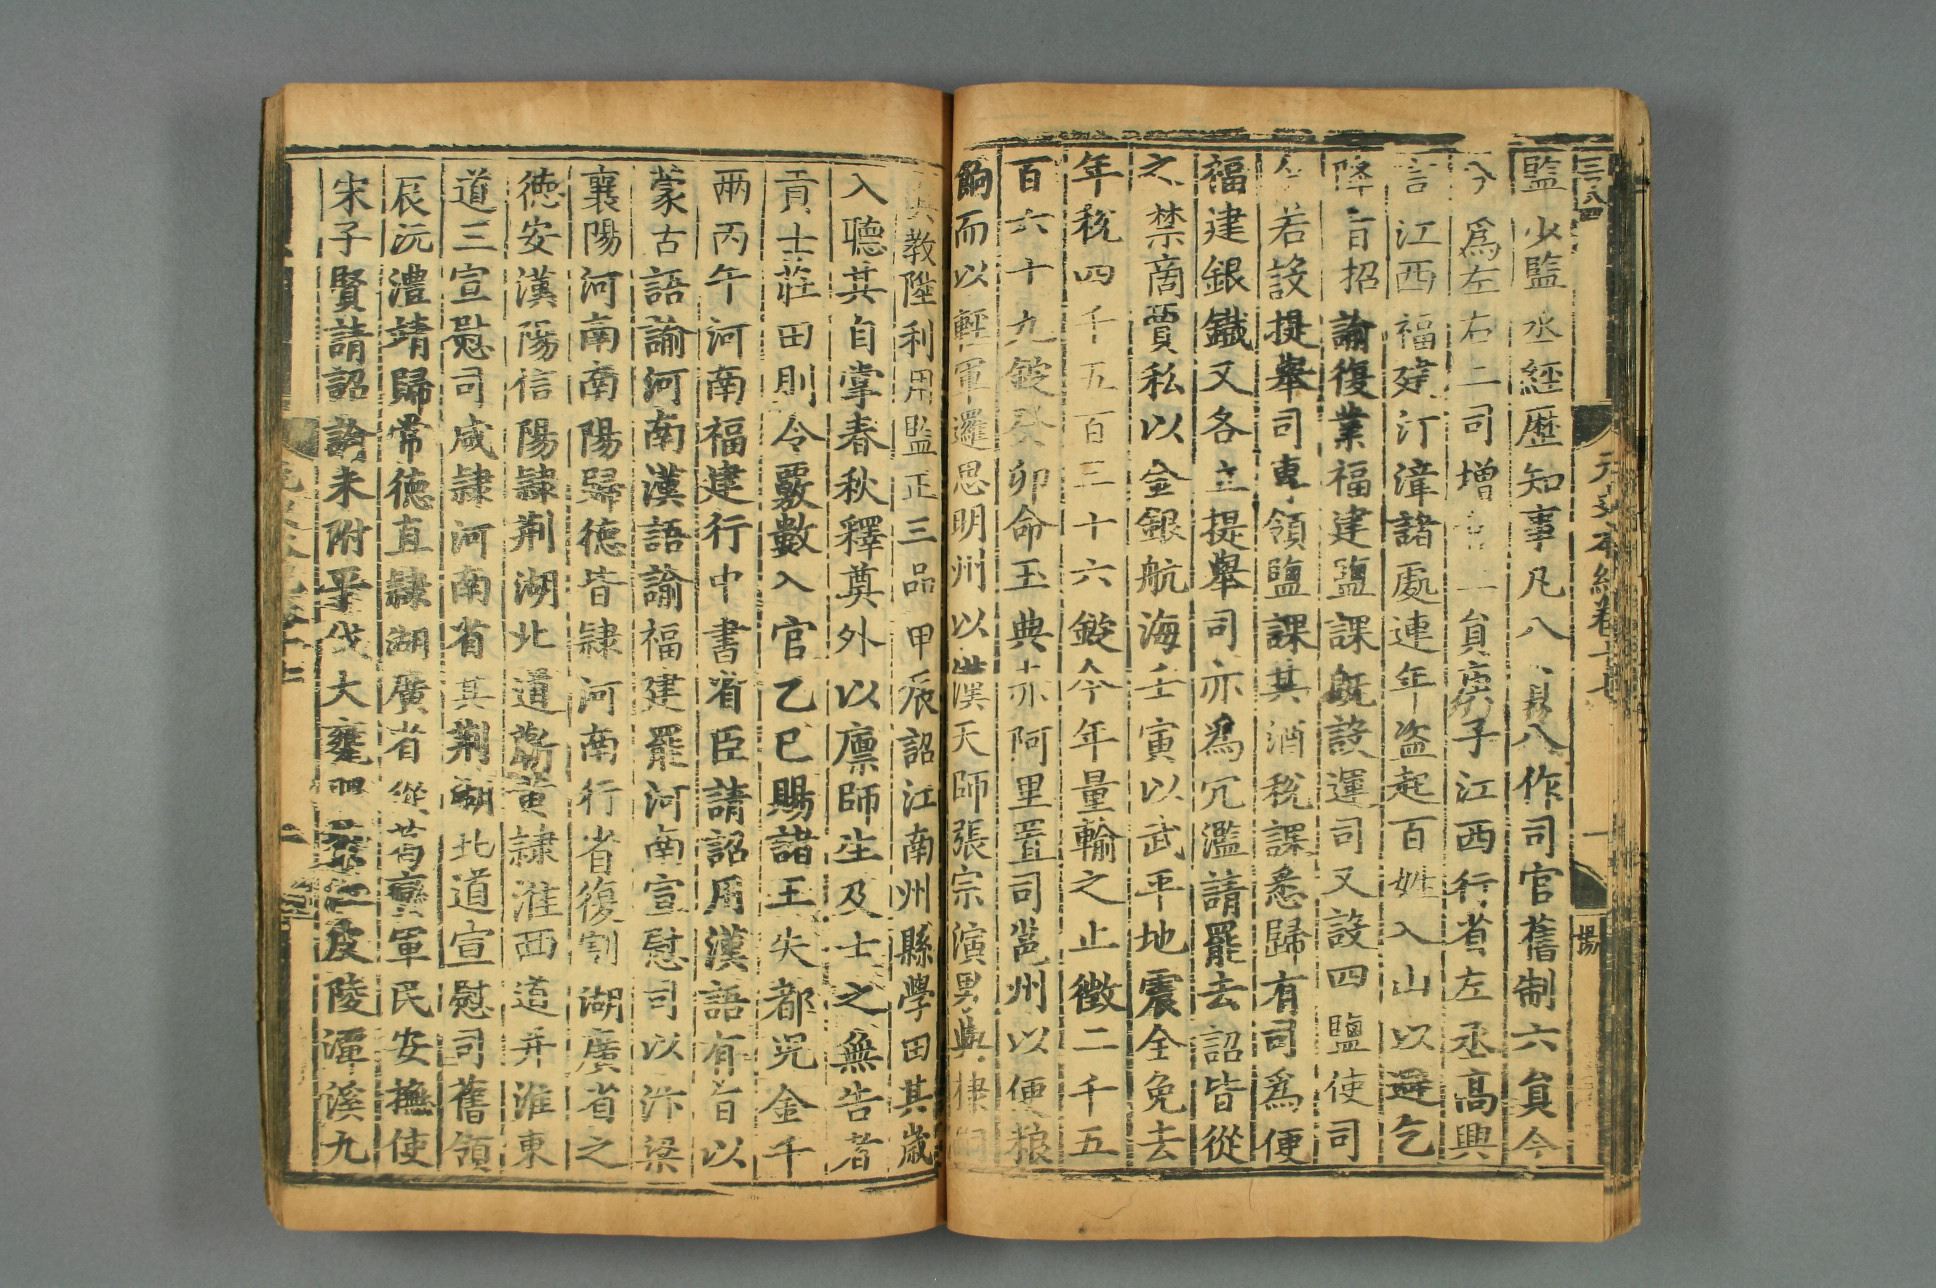 監少監丞經歷知事凡八員八作司官舊制六員今
分爲左右二司增官二員庚子江西行省左丞高興
言江西福建汀漳諸處連年盜起百姓入山以避乞
降旨招諭復業福建鹽課旣設運司又設四鹽使司
今若設提舉司專領鹽課其酒稅課悉歸有司爲便
福建銀鐵又各立提舉司亦爲冗濫請罷去詔皆從
之禁商賈私以金銀航海壬寅以武平地震全免去
年稅四千五百三十六錠今年量輸之止徵二千五
百六十九錠癸卯命玉典赤阿里置司邕州以便粮
餉而以輕軍邏思明州以漢天師張宗演男與棣嗣
其教陞利用監正三品甲辰詔江南州縣學田其歲
入聽其自掌春秋釋奠外以廪師生及士之無告者
貢士莊田則令覈數入官乙巳賜諸王失都兒金千
兩丙午河南福建行中書省臣請詔用漢語有旨以
蒙古語諭河南漢語諭福建罷河南宣慰司以汴梁
襄陽河南南陽歸德皆隸河南行省復割湖廣省之
德安漢陽信陽隸荆湖北道蘄黄隸淮西道并淮東
道三宣慰司咸隸河南省其荆湖北道宣慰司舊領
辰沅澧靖歸常德直隸湖廣省從葛蠻軍民安撫使
宋子賢請詔諭未附平伐大甕眼紫江皮陵潭溪九
元史本紀卷十七